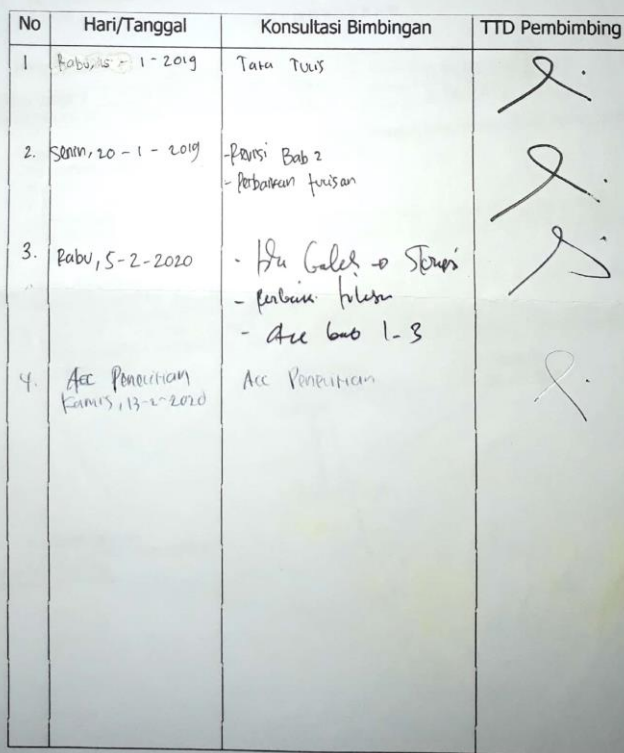 No Hari/Tanggal Konsultasi Bimbingan TTD Pembimbing
1 Rabu, 15 - 1 - 2019 Tata Tulis
2. Senin, 20 - 1 - 2019 - Revisi Bab 2
- Perbaikan tulisan
3. Rabu, 5 - 2 - 2020
- Perbaiki tulisan
- Acc bab 1 - 3
4. Acc Penelitian Acc Penelitian
Kamis, 13 - 2 - 2020